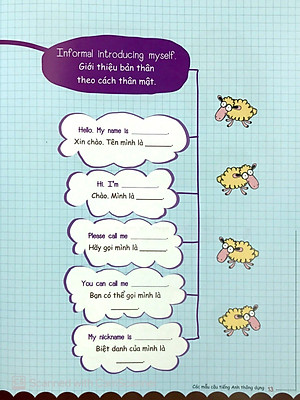 Informal introducing myself.
Giới thiệu bản thân
theo cách thân mật.
Hello. My name is ________.
Xin chào. Tên mình là ________.
Hi. I'm ________.
Chào. Mình là ________.
Please call me ________.
Hãy gọi mình là ________.
You can call me ________.
Bạn có thể gọi mình là
________.
My nickname is ________.
Biệt danh của mình là
________.
Các mẫu câu tiếng Anh thông dụng